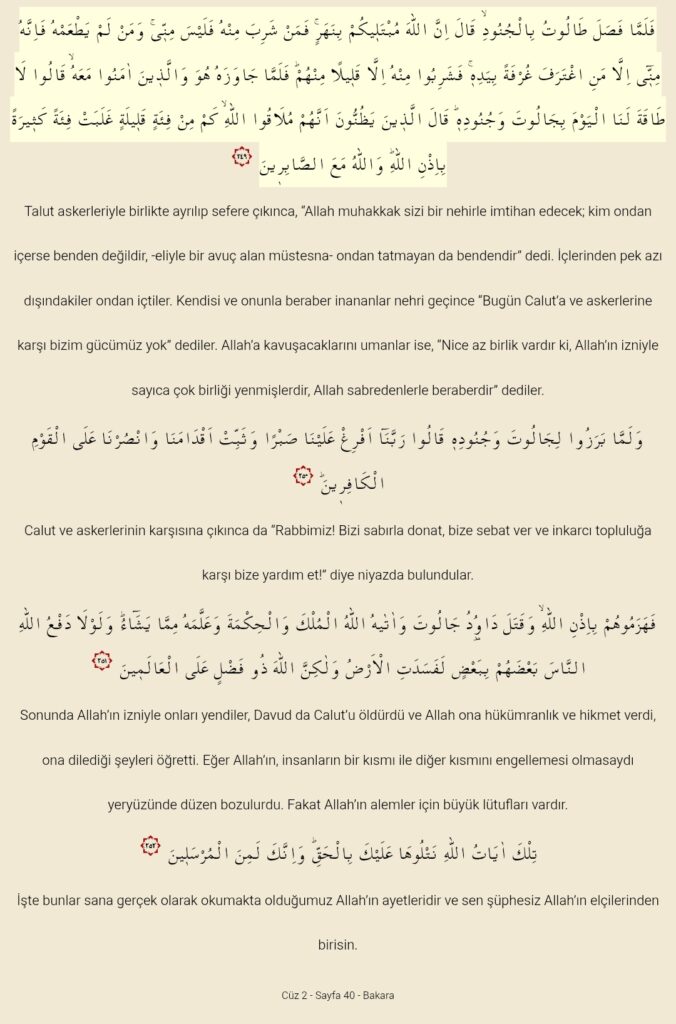 فَلَمَّا فَصَلَ طَالُوتُ بِالْجُنُودِۙ قَالَ اِنَّ اللّٰهَ مُبْتَلٖيكُمْ بِنَهَرٍۚ فَمَنْ شَرِبَ مِنْهُ فَلَيْسَ مِنّٖيۚ وَمَنْ لَمْ يَطْعَمْهُ فَاِنَّهُ
مِنّٖٓي اِلَّا مَنِ اغْتَرَفَ غُرْفَةً بِيَدِهٖۚ فَشَرِبُوا مِنْهُ اِلَّا قَلٖيلًا مِنْهُمْؕ فَلَمَّا جَاوَزَهُ هُوَ وَالَّذٖينَ اٰمَنُوا مَعَهُۙ قَالُوا لَا
طَاقَةَ لَنَا الْيَوْمَ بِجَالُوتَ وَجُنُودِهٖؕ قَالَ الَّذٖينَ يَظُنُّونَ اَنَّهُمْ مُلَاقُوا اللّٰهِۙ كَمْ مِنْ فِئَةٍ قَلٖيلَةٍ غَلَبَتْ فِئَةً كَثٖيرَةً
بِاِذْنِ اللّٰهِؕ وَاللّٰهُ مَعَ الصَّابِرٖينَ ٢٤٩
Talut askerleriyle birlikte ayrılıp sefere çıkınca, “Allah muhakkak sizi bir nehirle imtihan edecek; kim ondan
içerse benden değildir, -eliyle bir avuç alan müstesna- ondan tatmayan da bendendir” dedi. İçlerinden pek azı
dışındakiler ondan içtiler. Kendisi ve onunla beraber inananlar nehri geçince “Bugün Calut’a ve askerlerine
karşı bizim gücümüz yok” dediler. Allah’a kavuşacaklarını umanlar ise, “Nice az birlik vardır ki, Allah’ın izniyle
sayıca çok birliği yenmişlerdir, Allah sabredenlerle beraberdir” dediler.
وَلَمَّا بَرَزُوا لِجَالُوتَ وَجُنُودِهٖ قَالُوا رَبَّنَٓا اَفْرِغْ عَلَيْنَا صَبْرًا وَثَبِّتْ اَقْدَامَنَا وَانْصُرْنَا عَلَى الْقَوْمِ
الْكَافِرٖينَؕ ٢٥٠
Calut ve askerlerinin karşısına çıkınca da “Rabbimiz! Bizi sabırla donat, bize sebat ver ve inkarcı topluluğa
karşı bize yardım et!” diye niyazda bulundular.
فَهَزَمُوهُمْ بِاِذْنِ اللّٰهِۙ وَقَتَلَ دَاوُ۫دُ جَالُوتَ وَاٰتٰيهُ اللّٰهُ الْمُلْكَ وَالْحِكْمَةَ وَعَلَّمَهُ مِمَّا يَشَٓاءُؕ وَلَوْلَا دَفْعُ اللّٰهِ
النَّاسَ بَعْضَهُمْ بِبَعْضٍ لَفَسَدَتِ الْاَرْضُ وَلٰكِنَّ اللّٰهَ ذُو فَضْلٍ عَلَى الْعَالَمٖينَ ٢٥١
Sonunda Allah’ın izniyle onları yendiler, Davud da Calut’u öldürdü ve Allah ona hükümranlık ve hikmet verdi,
ona dilediği şeyleri öğretti. Eğer Allah’ın, insanların bir kısmı ile diğer kısmını engellemesi olmasaydı
yeryüzünde düzen bozulurdu. Fakat Allah’ın alemler için büyük lütufları vardır.
تِلْكَ اٰيَاتُ اللّٰهِ نَتْلُوهَا عَلَيْكَ بِالْحَقِّؕ وَاِنَّكَ لَمِنَ الْمُرْسَلٖينَ ٢٥٢
İşte bunlar sana gerçek olarak okumakta olduğumuz Allah’ın ayetleridir ve sen şüphesiz Allah’ın elçilerinden
birisin.
Cüz 2 - Sayfa 40 - Bakara